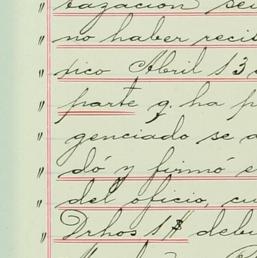 " tazacion se
" no haber recis
" pico Abril 13
" parte q. ha p
" genciado se a
" dó y firmó e
" del oficio, cu
" Drhos 1$ deb